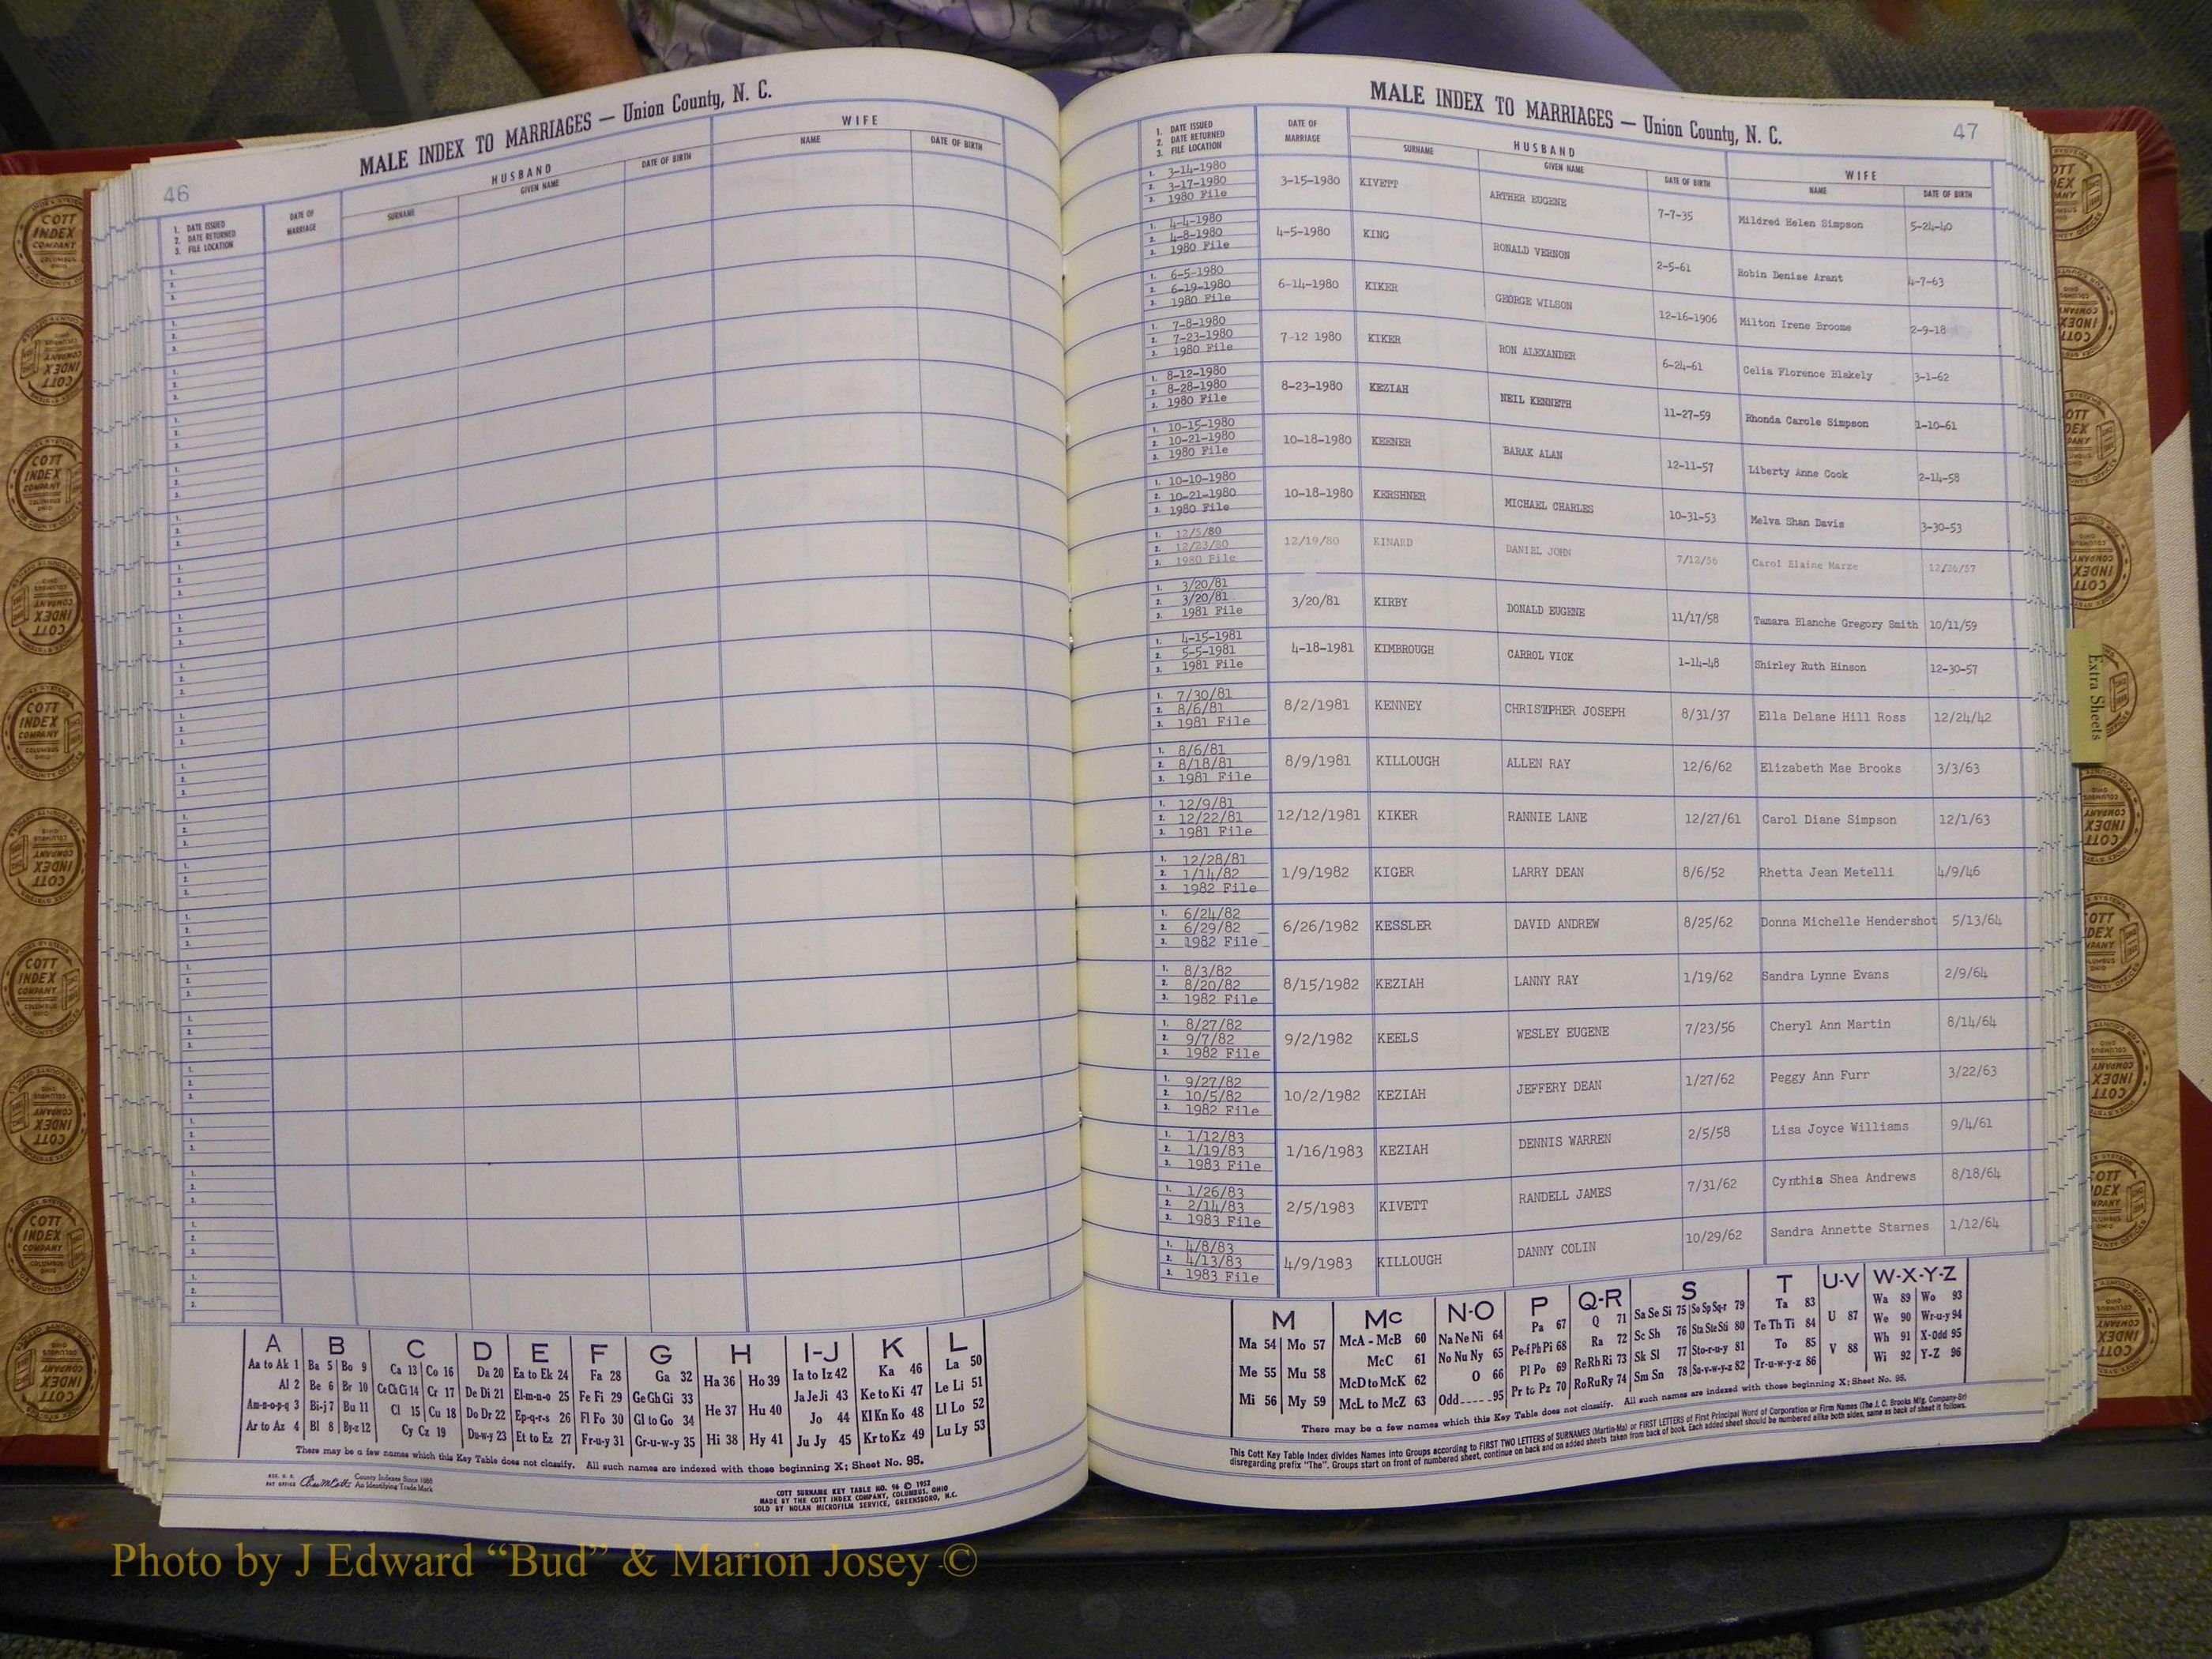 MALE INDEX TO MARRIAGES — Union County, N. C.
46
1. DATE ISSUED
2. DATE RETURNED
3. FILE LOCATION
DATE OF MARRIAGE
HUSBAND
SURNAME
GIVEN NAME
DATE OF BIRTH
WIFE
NAME
DATE OF BIRTH
A B C D E F G H I-J K L
Aa to Ak 1 Ba 5 Bo 9 Ca 13 Co 16 Da 20 Ea to Ek 24 Fa 28 Ga 32 Ha 36 Ho 39 Ia to Iz 42 Ka 46 La 50
Al 2 Be 6 Br 10 Ce Ch Ci 14 Cr 17 De Di 21 El-m-n-o 25 Fe Fi 29 Ge Gh Gi 33 He 37 Hu 40 Ja Je Ji 43 Ke to Ki 47 Le Li 51
Am-n-o-p-q 3 Bi-j 7 Bu 11 Cl 15 Cu 18 Do Dr 22 Ep-q-r-s 26 Fl Fo 30 Gl to Go 34 Hi 38 Hy 41 Jo 44 Kl Kn Ko 48 Ll Lo 52
Ar to Az 4 Bl 8 By-z 12 Cy Cz 19 Du-w-y 23 Et to Ez 27 Fr-u-y 31 Gr-u-w-y 35 Ju Jy 45 Kr to Kz 49 Lu Ly 53
There may be a few names which this Key Table does not classify. All such names are indexed with those beginning X; Sheet No. 95.
County Indexes Since 1888
An Identifying Trade Mark
COTT SURNAME KEY TABLE NO. 96 © 1952
MADE BY THE COTT INDEX COMPANY, COLUMBUS, OHIO
SOLD BY NOLAN MICROFILM SERVICE, GREENSBORO, N.C.
MALE INDEX TO MARRIAGES — Union County, N. C.
47
1. DATE ISSUED
2. DATE RETURNED
3. FILE LOCATION
DATE OF MARRIAGE
HUSBAND
SURNAME
GIVEN NAME
DATE OF BIRTH
WIFE
NAME
DATE OF BIRTH
1. 3-14-1980
2. 3-17-1980
3. 1980 File
3-15-1980 KIVETT ARTHER EUGENE 7-7-35 Mildred Helen Simpson 5-24-40
1. 4-4-1980
2. 4-8-1980
3. 1980 File
4-5-1980 KING RONALD VERNON 2-5-61 Robin Denise Arant 4-7-63
1. 6-5-1980
2. 6-19-1980
3. 1980 File
6-14-1980 KIKER GEORGE WILSON 12-16-1906 Milton Irene Broome 2-9-18
1. 7-8-1980
2. 7-23-1980
3. 1980 File
7-12 1980 KIKER RON ALEXANDER 6-24-61 Celia Florence Blakely 3-1-62
1. 8-12-1980
2. 8-28-1980
3. 1980 File
8-23-1980 KEZIAH NEIL KENNETH 11-27-59 Rhonda Carole Simpson 1-10-61
1. 10-15-1980
2. 10-21-1980
3. 1980 File
10-18-1980 KEENER BARAK ALAN 12-11-57 Liberty Anne Cook 2-14-58
1. 10-10-1980
2. 10-21-1980
3. 1980 File
10-18-1980 KERSHNER MICHAEL CHARLES 10-31-53 Melva Shan Davis 3-30-53
1. 12/5/80
2. 12/23/80
3. 1980 File
12/19/80 KINARD DANIEL JOHN 7/12/56 Carol Elaine Marze 12/26/57
1. 3/20/81
2. 3/20/81
3. 1981 File
3/20/81 KIRBY DONALD EUGENE 11/17/58 Tamara Blanche Gregory Smith 10/11/59
1. 4-15-1981
2. 5-5-1981
3. 1981 File
4-18-1981 KIMBROUGH CARROL VICK 1-14-48 Shirley Ruth Hinson 12-30-57
1. 7/30/81
2. 8/6/81
3. 1981 File
8/2/1981 KENNEY JOSEPH 8/31/37 Ella Delane Hill Ross 12/24/42
1. 8/6/81
2. 8/18/81
3. 1981 File
8/9/1981 KILLOUGH ALLEN RAY 12/6/62 Elizabeth Mae Brooks 3/3/63
1. 12/9/81
2. 12/22/81
3. 1981 File
12/12/1981 KIKER RANNIE LANE 12/27/61 Carol Diane Simpson 12/1/63
1. 12/28/81
2. 1/14/82
3. 1982 File
1/9/1982 KIGER LARRY DEAN 8/6/52 Rhetta Jean Metelli 4/9/46
1. 6/24/82
2. 6/29/82
3. 1982 File
6/26/1982 KESSLER DAVID ANDREW 8/25/62 Donna Michelle Hendershot 5/13/64
1. 8/3/82
2. 8/20/82
3. 1982 File
8/15/1982 KEZIAH LANNY RAY 1/19/62 Sandra Lynne Evans 2/9/64
1. 8/27/82
2. 9/7/82
3. 1982 File
9/2/1982 KEELS WESLEY EUGENE 7/23/56 Cheryl Ann Martin 8/14/64
1. 9/27/82
2. 10/5/82
3. 1982 File
10/2/1982 KEZIAH JEFFERY DEAN 1/27/62 Peggy Ann Furr 3/22/63
1. 1/12/83
2. 1/19/83
3. 1983 File
1/16/1983 KEZIAH DENNIS WARREN 2/5/58 Lisa Joyce Williams 9/4/61
1. 1/26/83
2. 2/14/83
3. 1983 File
2/5/1983 KIVETT RANDELL JAMES 7/31/62 Cynthia Shea Andrews 8/18/64
1. 4/8/83
2. 4/13/83
3. 1983 File
4/9/1983 KILLOUGH DANNY COLIN 10/29/62 Sandra Annette Starnes 1/12/64
M Mc N-O P Q-R S T U-V W-X-Y-Z
Ma 54 Mo 57 McA - McB 60 Na Ne Ni 64 Pa 67 Q 71 Sa Se Si 75 So Sp Sq-r 79 Ta 83 U 87 Wa 89 Wo 93
Me 55 Mu 58 McC 61 No Nu Ny 65 Pe-f Ph Pi 68 Ra 72 Sc Sh 76 Sta Ste Sti 80 Te Th Ti 84 V 88 We 90 Wr-u-y 94
Mi 56 My 59 McD to McK 62 O 66 Pl Po 69 Re Rh Ri 73 Sk Sl 77 Sto-r-u-y 81 To 85 Wh 91 X-Odd 95
McL to McZ 63 Odd 95 Pr to Pz 70 Ro Ru Ry 74 Sm Sn 78 Su-v-w-y-z 82 Tr-u-w-y-z 86 Wi 92 Y-Z 96
There may be a few names which this Key Table does not classify. All such names are indexed with those beginning X; Sheet No. 95.
This Cott Key Table Index divides Names into Groups according to FIRST TWO LETTERS of SURNAMES (Martin-Ma) or FIRST LETTERS of First Principal Word of Corporation or Firm Names (The J. C. Brooks Mfg. Company-Br)
disregarding prefix "The". Groups start on front of numbered sheet, continue on back and on added sheets taken from back of book. Each added sheet should be numbered alike both sides, same as back of sheet it follows.
Extra Sheets
COTT INDEX COMPANY COLUMBUS OHIO
Photo by J Edward “Bud” & Marion Josey ©